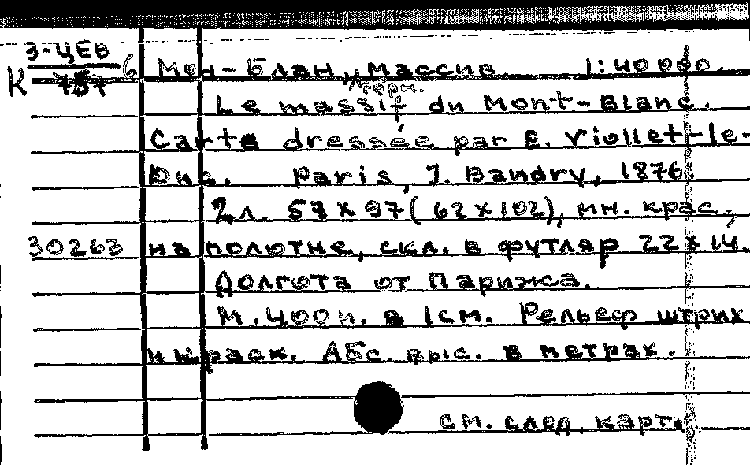 З-ЦЕВ
К 6 Мон-Блан, массив 1:40 000.
горн.
Le massif du Mont-Blanc.
Carte dressée par E. Viollet-le-
Duc. Paris, J. Baudry, 1876.
2 л. 57 x 97 (62 x 102), мн. крас.,
30263 на полотне, скл. в футляр 22 x 14.
Долгота от Парижа.
М. 400 м. в 1 см. Рельеф штрих
и краск. Абс. выс. в метрах.
см. след. карт.